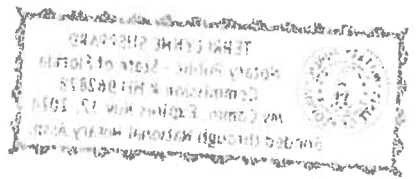 TERRI LYNNE SHEPPARD
Notary Public - State of Florida
Commission # HH
My Comm. Expires Nov 17, 2024
Bonded through National Notary Assn.